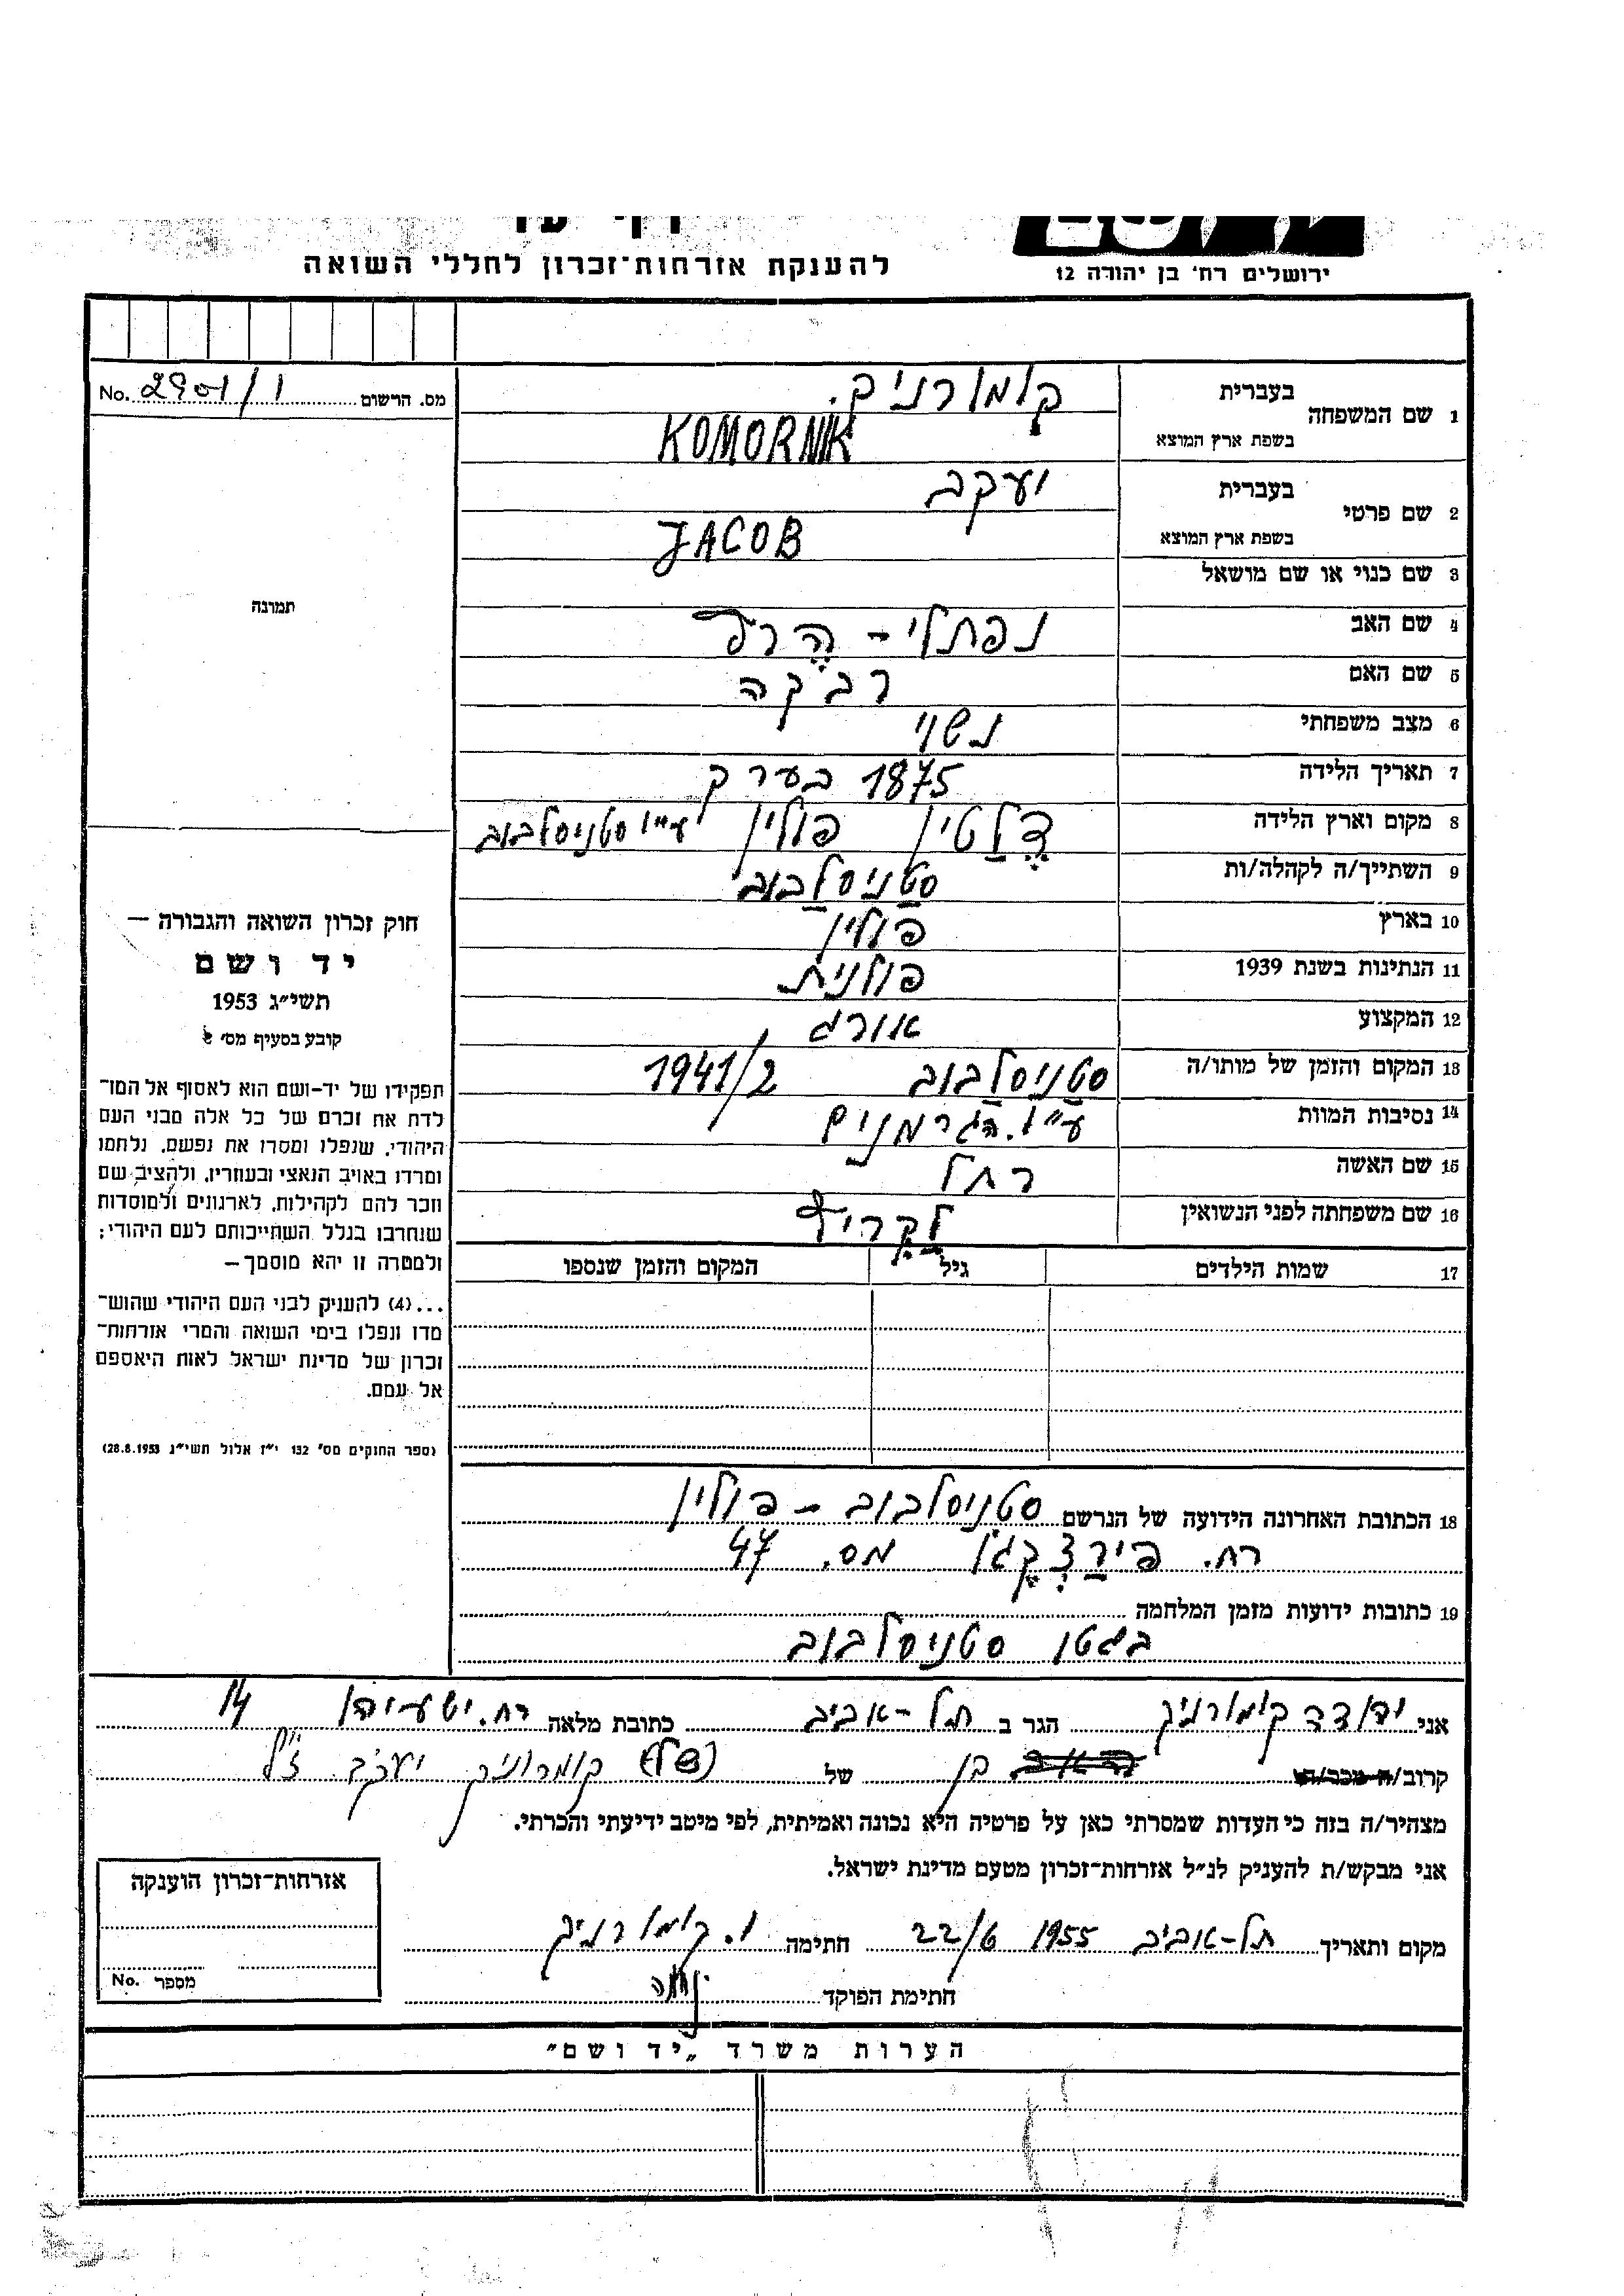 להענקת אזרחות־זכרון לחללי השואה
ירושלים רח' בן יהודה 12
מס. הרשום 2901/1 No.
1 שם המשפחה בעברית קומורניק.
בשפת ארץ המוצא KOMORNIK
2 שם פרטי בעברית יעקב
בשפת ארץ המוצא JACOB
3 שם כנוי או שם מושאל
תמונה
4 שם האב נפתלי - הרץ
5 שם האם רבקה
6 מצב משפחתי נשוי
7 תאריך הלידה 1875 בערך
8 מקום וארץ הלידה דלטין פולין ע"י סטניסלבוב
9 השתייך/ה לקהלה/ות סטניסלבוב
10 בארץ פולין
11 הנתינות בשנת 1939 פולנית
12 המקצוע אורג
13 המקום והזמן של מותו/ה סטניסלבוב 1941/2
14 נסיבות המוות ע"י הגרמנים
15 שם האשה רחל
16 שם משפחתה לפני הנשואין
17 שמות הילדים גיל המקום והזמן שנספו
חוק זכרון השואה והגבורה —
יד ושם
תשי"ג 1953
קובע בסעיף מס'
תפקידו של יד-ושם הוא לאסוף אל המו־
לדת את זכרם של כל אלה מבני העם
היהודי, שנפלו ומסרו את נפשם, נלחמו
ומרדו באויב הנאצי ובעוזריו, ולהציב שם
וזכר להם לקהילות, לארגונים ולמוסדות
שנחרבו בגלל השתייכותם לעם היהודי;
ולמטרה זו יהא מוסמך —
...(4) להעניק לבני העם היהודי שהוש־
מדו ונפלו בימי השואה והמרי אזרחות־
זכרון של מדינת ישראל לאות היאספם
אל עמם.
(ספר החוקים מס' 132 י"ז אלול תשי"ג 28.8.1953)
18 הכתובת האחרונה הידועה של הנרשם סטניסלבוב - פולין
רח. מס. 47
19 כתובות ידועות מזמן המלחמה
בגטו סטניסלבוב
אני יהודה קומורניק הגר ב תל-אביב כתובת מלאה רח. ישעיהו 14
קרוב/ה מכר/ה בן של (של) קומרוניק יעקב ז"ל
מצהיר/ה בזה כי העדות שמסרתי כאן על פרטיה היא נכונה ואמיתית, לפי מיטב ידיעתי והכרתי.
אני מבקש/ת להעניק לנ"ל אזרחות־זכרון מטעם מדינת ישראל.
מקום ותאריך תל-אביב 1955 22/6 חתימה י. קומורניק
חתימת הפוקד
אזרחות־זכרון הוענקה
מספר No.
הערות משרד „יד ושם"